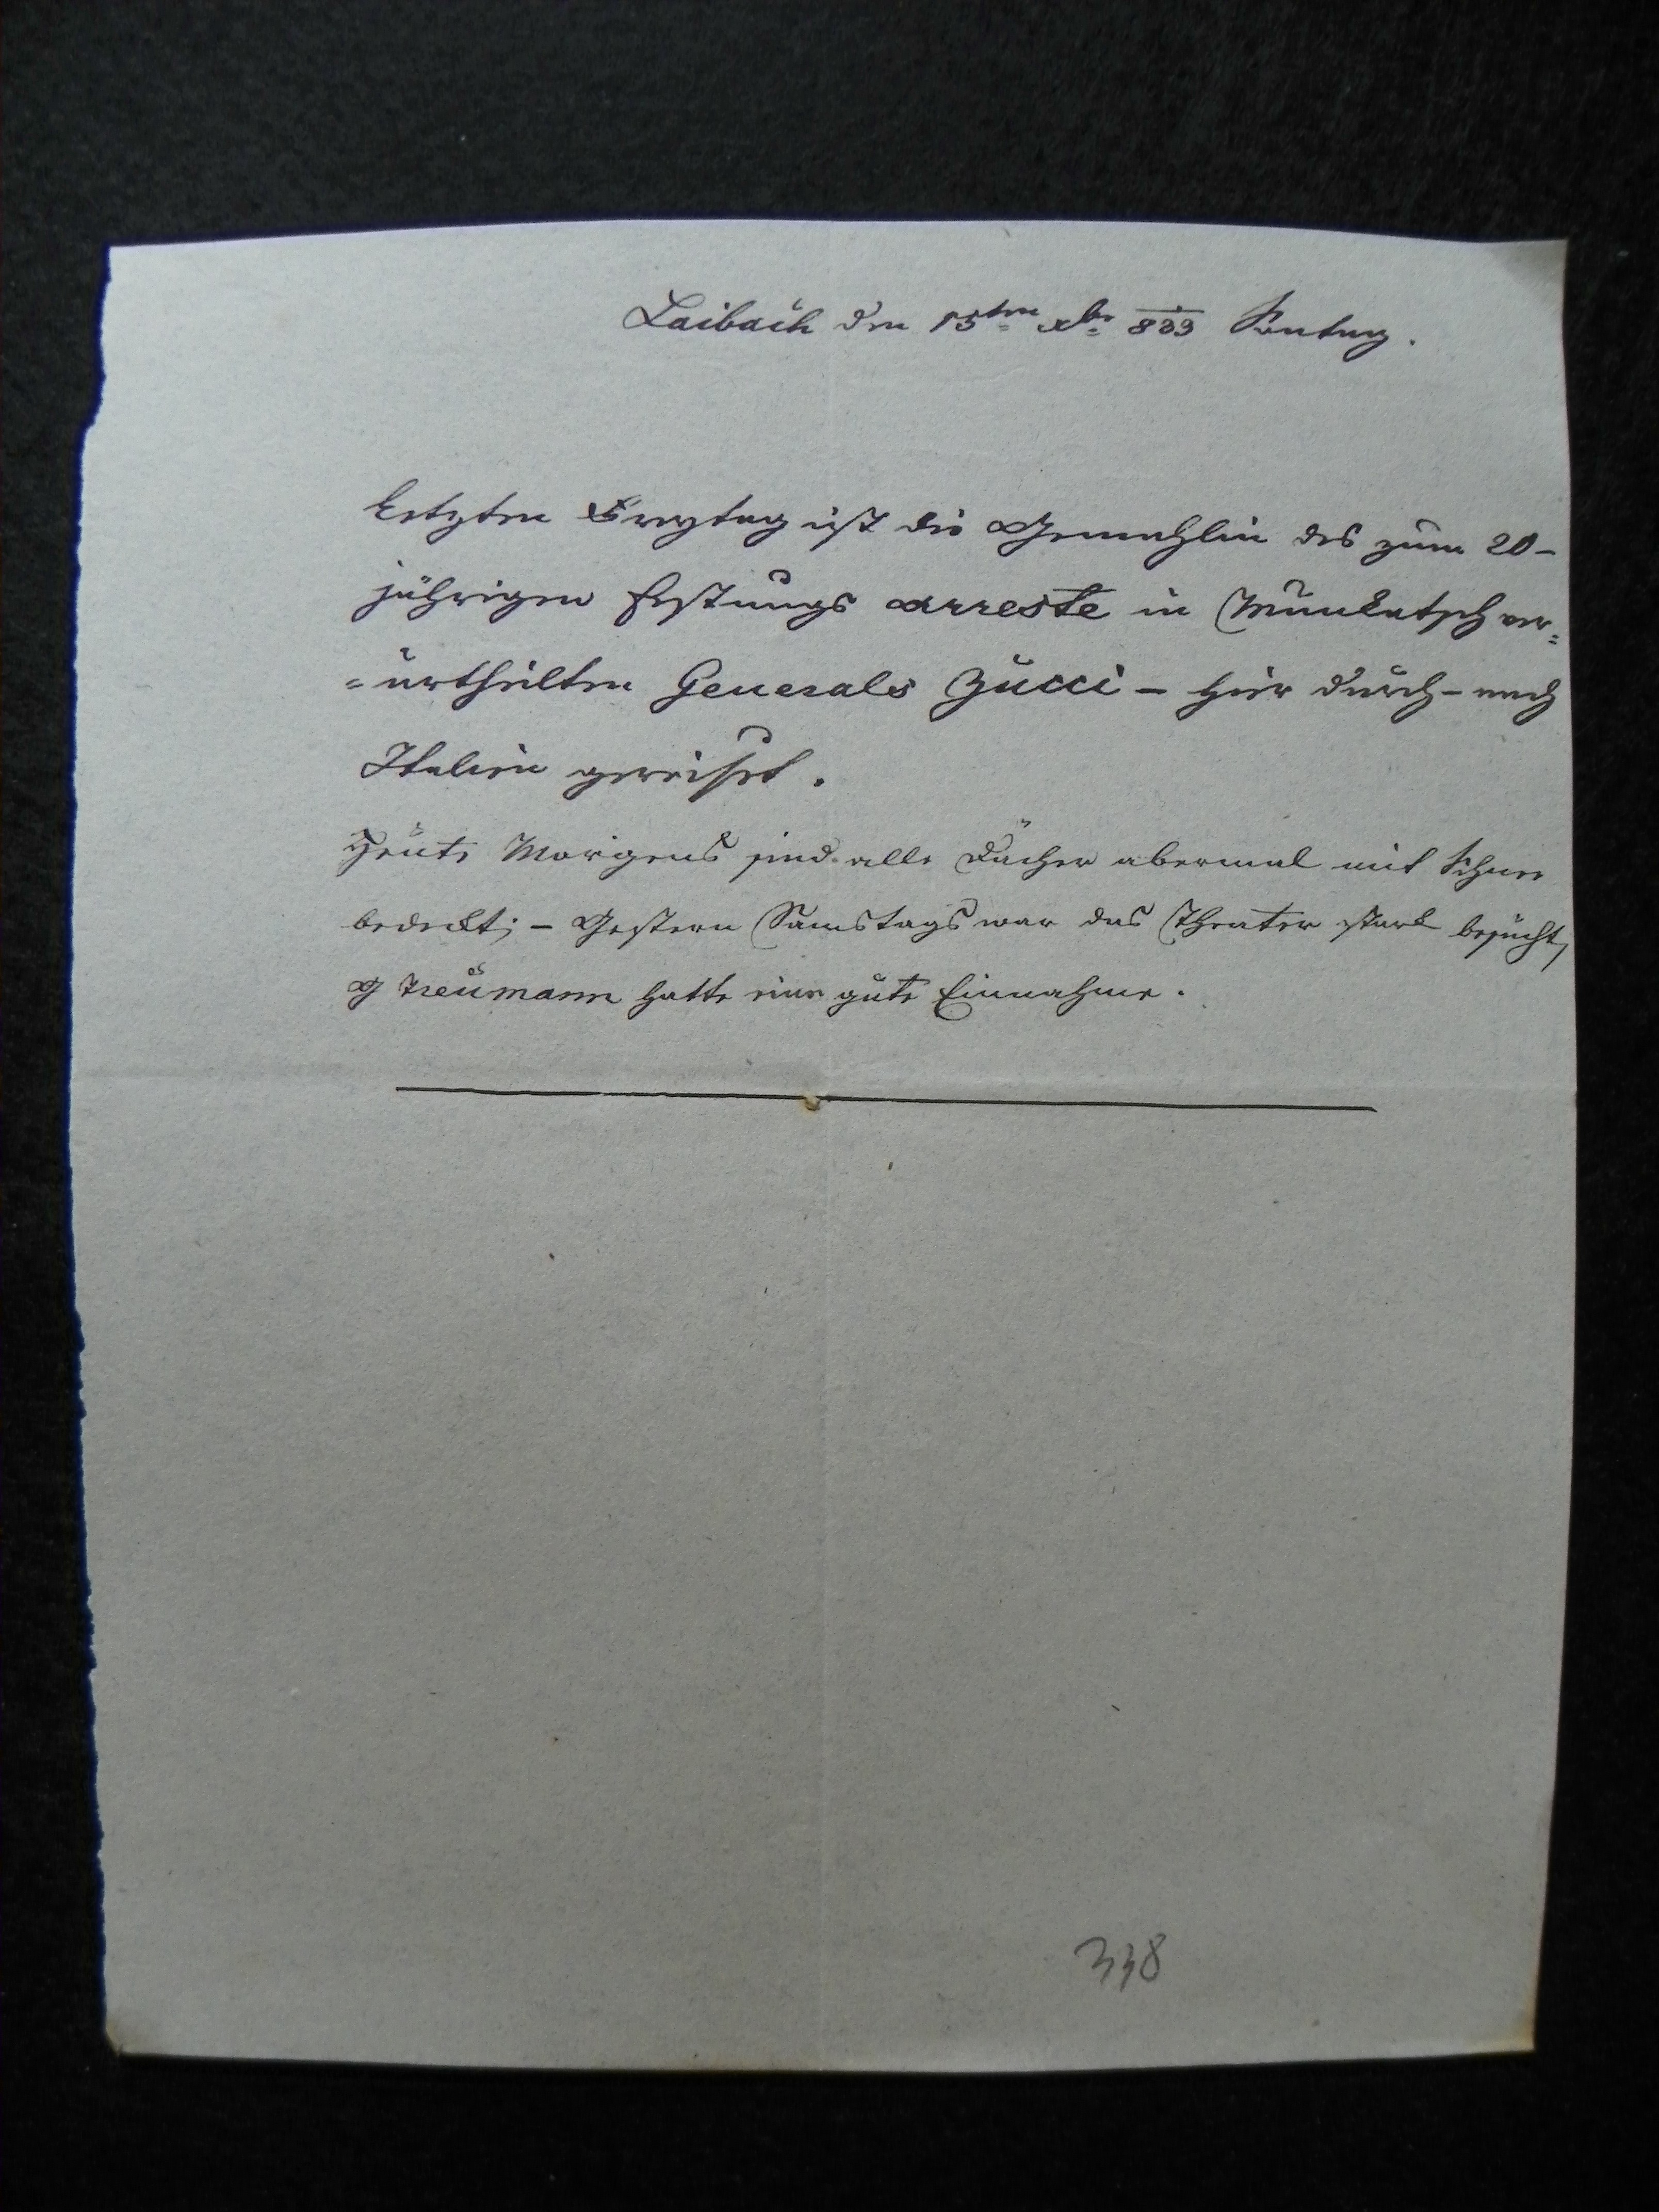 Laibach den 15ten xbr 833 Sontag.
Letzten Freytag ist die Gemahlin des zum 20-
jährigen Festungs Arreste in Munkatsch ver=
=urtheilten Generals Zucci – hier durch – nach
Italien gereiset.
Heute Morgens sind alle Dächer abermal mit Schnee
bedeckt; – Gestern Samstags war das Theater stark besucht,
Neumann hatte eine gute Einnahme.
338